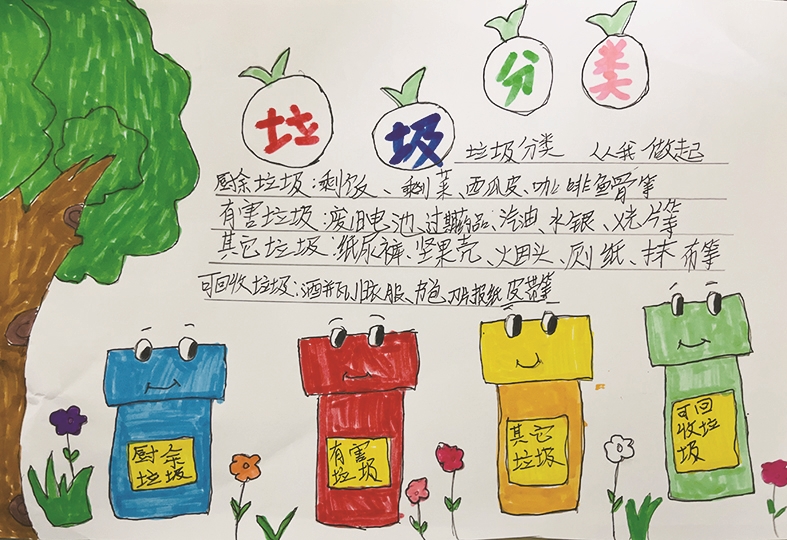 垃圾分类
垃圾分类 从我做起
厨余垃圾:剩饭、剩菜、西瓜皮、咖啡鱼骨等
有害垃圾:废旧电池、过期药品、汽油、水银、等
其它垃圾:纸尿裤、坚果壳、烟头、厕纸、抹布等
可回收垃圾:酒瓶、旧衣服、书包、报纸皮带等
厨余
垃圾
有害
垃圾
其它
垃圾
可回
收垃
圾